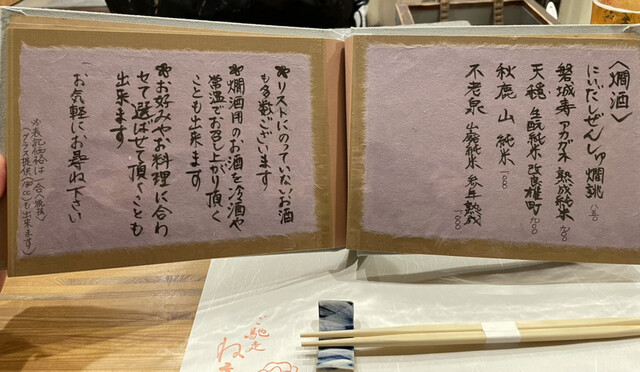 〈燗酒〉
にいだしぜんしゅ燗誂 八五〇
磐城寿 アカガネ 熟成純米 九〇〇
天穏 生酛純米 改良雄町 九〇〇
秋鹿 山 純米 一、〇〇〇
不老泉 山廃純米 参年熟成 一、一〇〇
＊リストにのっていないお酒
も多数ございます
＊燗酒用のお酒を冷酒や
常温でお召し上がり頂く
ことも出来ます
＊お好みやお料理に合わ
せて選ばせて頂くことも
出来ます
お気軽にお尋ね下さい
※表記価格は一合
（グラス提供も出来ます）
ご馳走
ね